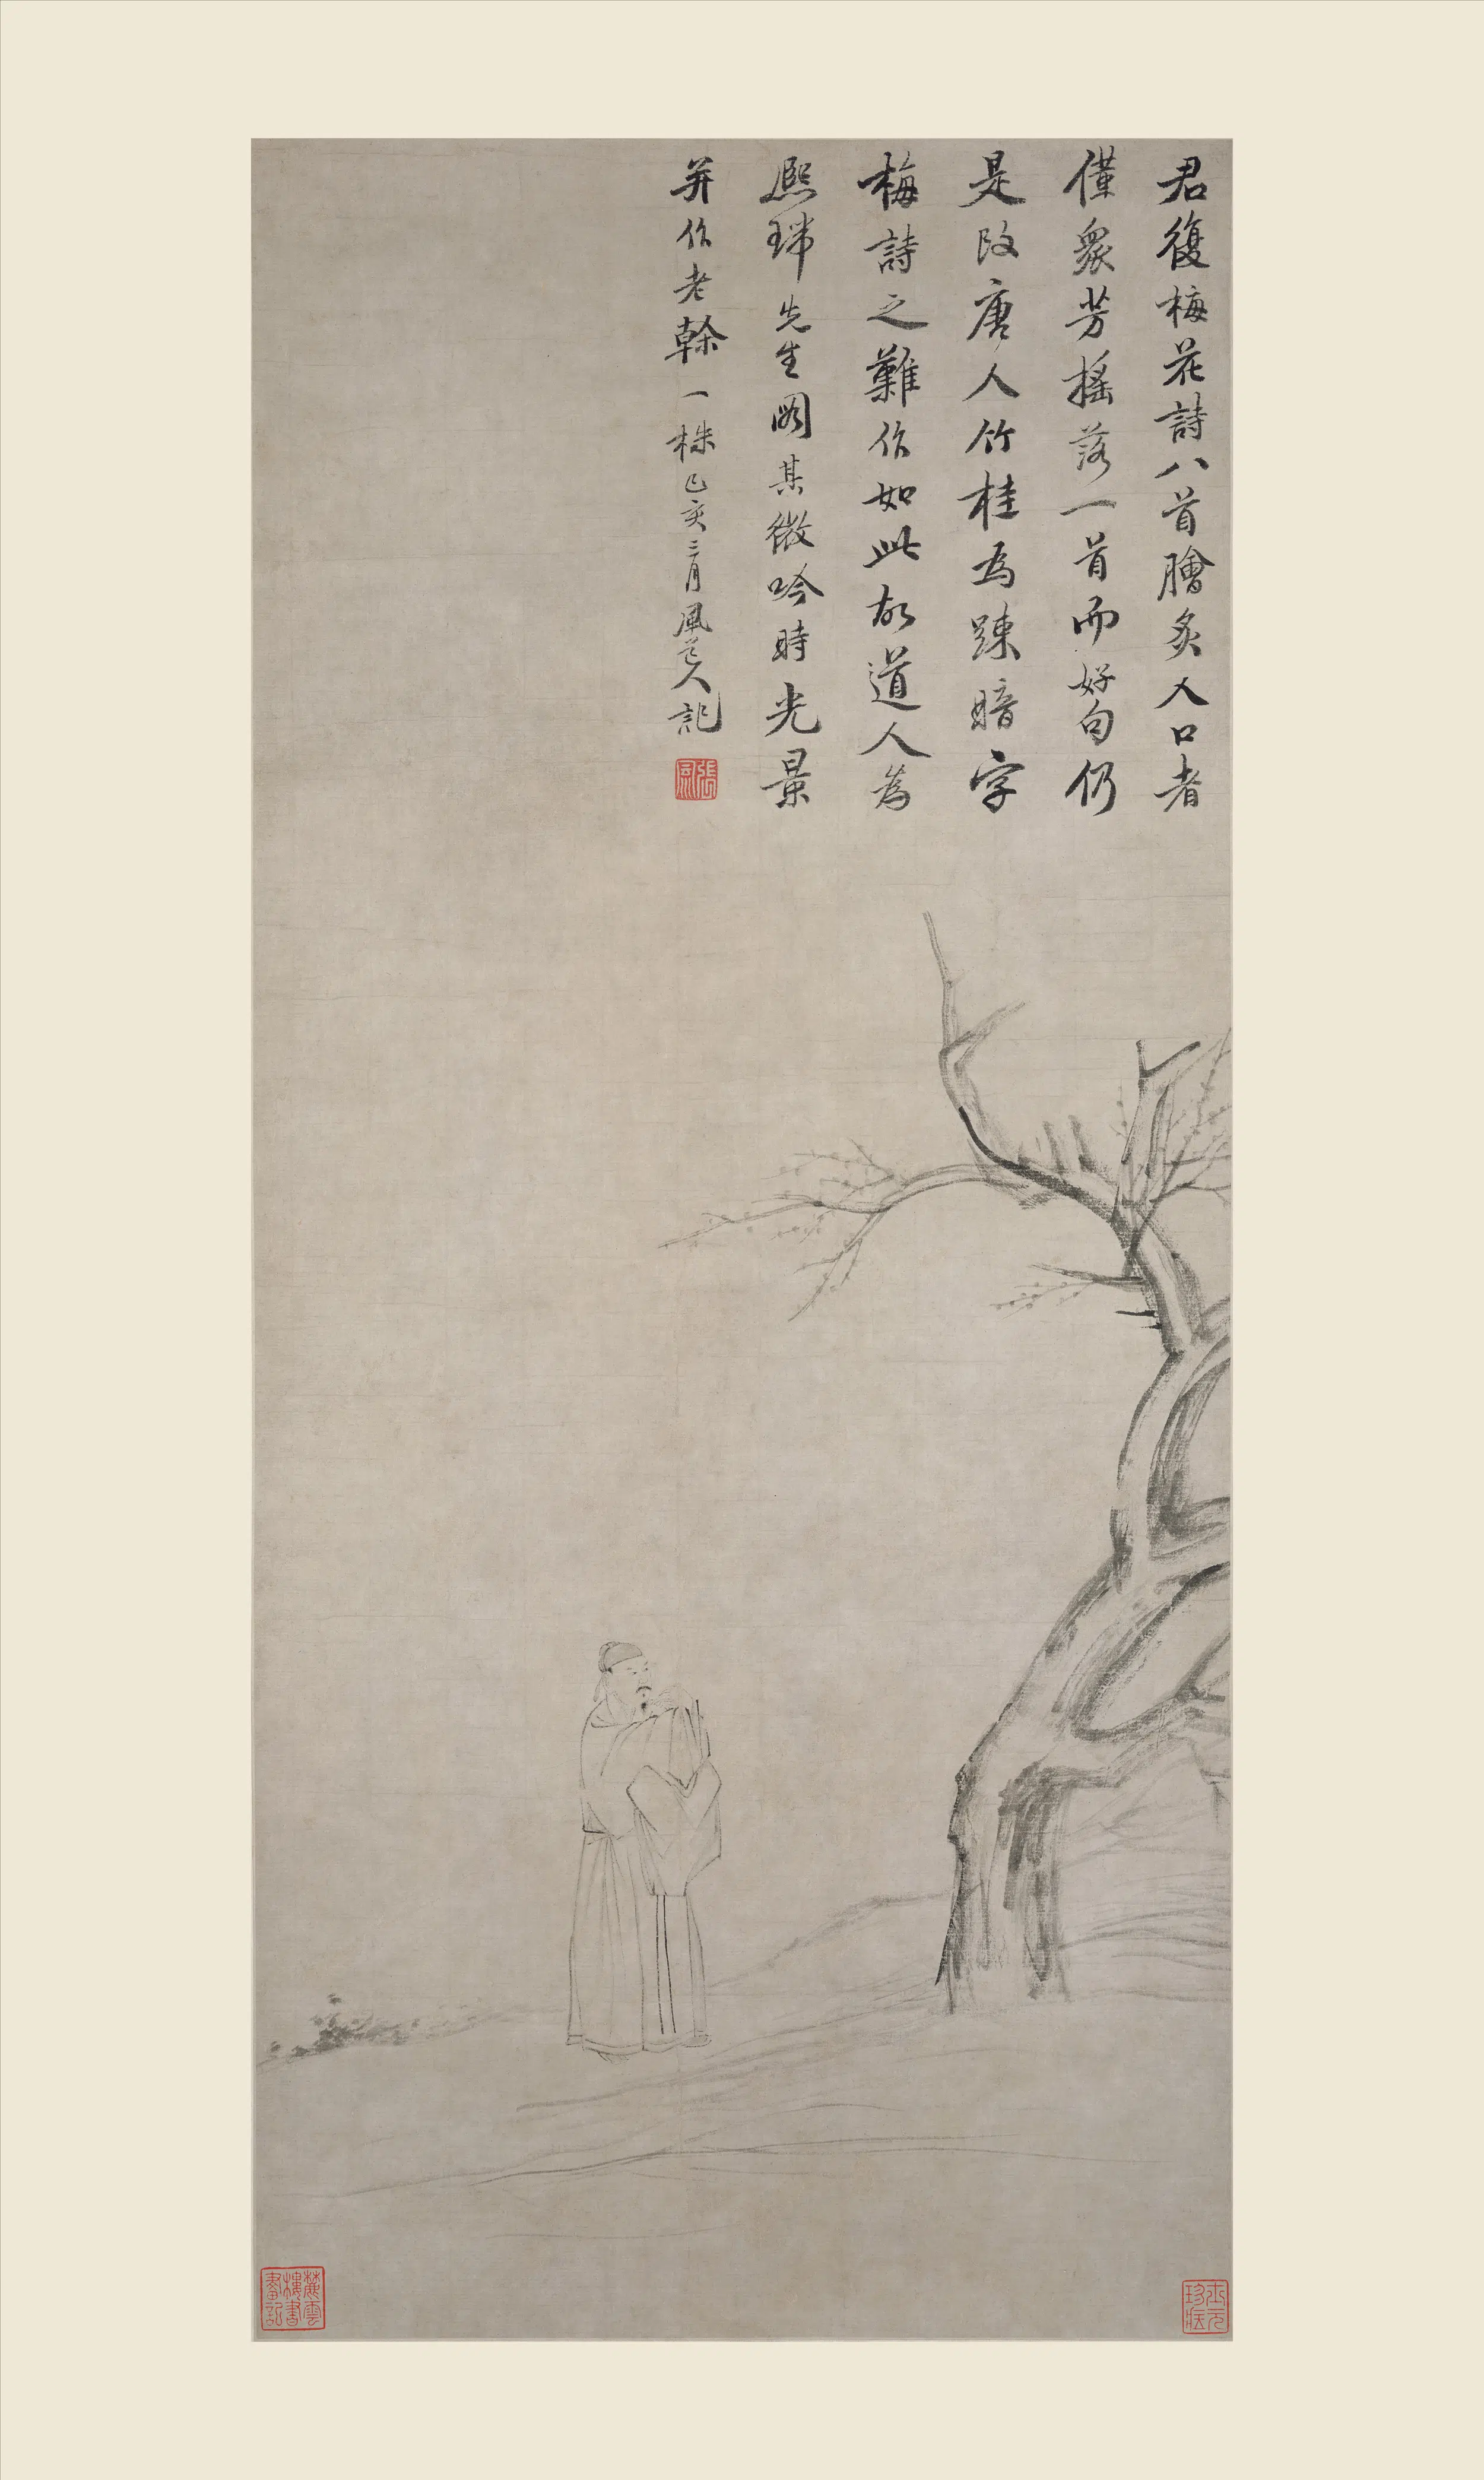 君復梅花詩八首膾炙人口者
僅衆芳搖落一首而好句仍
是改唐人竹桂為疎暗字
梅詩之難作如此故道人為
熈瑞先生圖其微吟時光景
并作老榦一株己亥三月風道人記
張風
麓雲樓書畫記